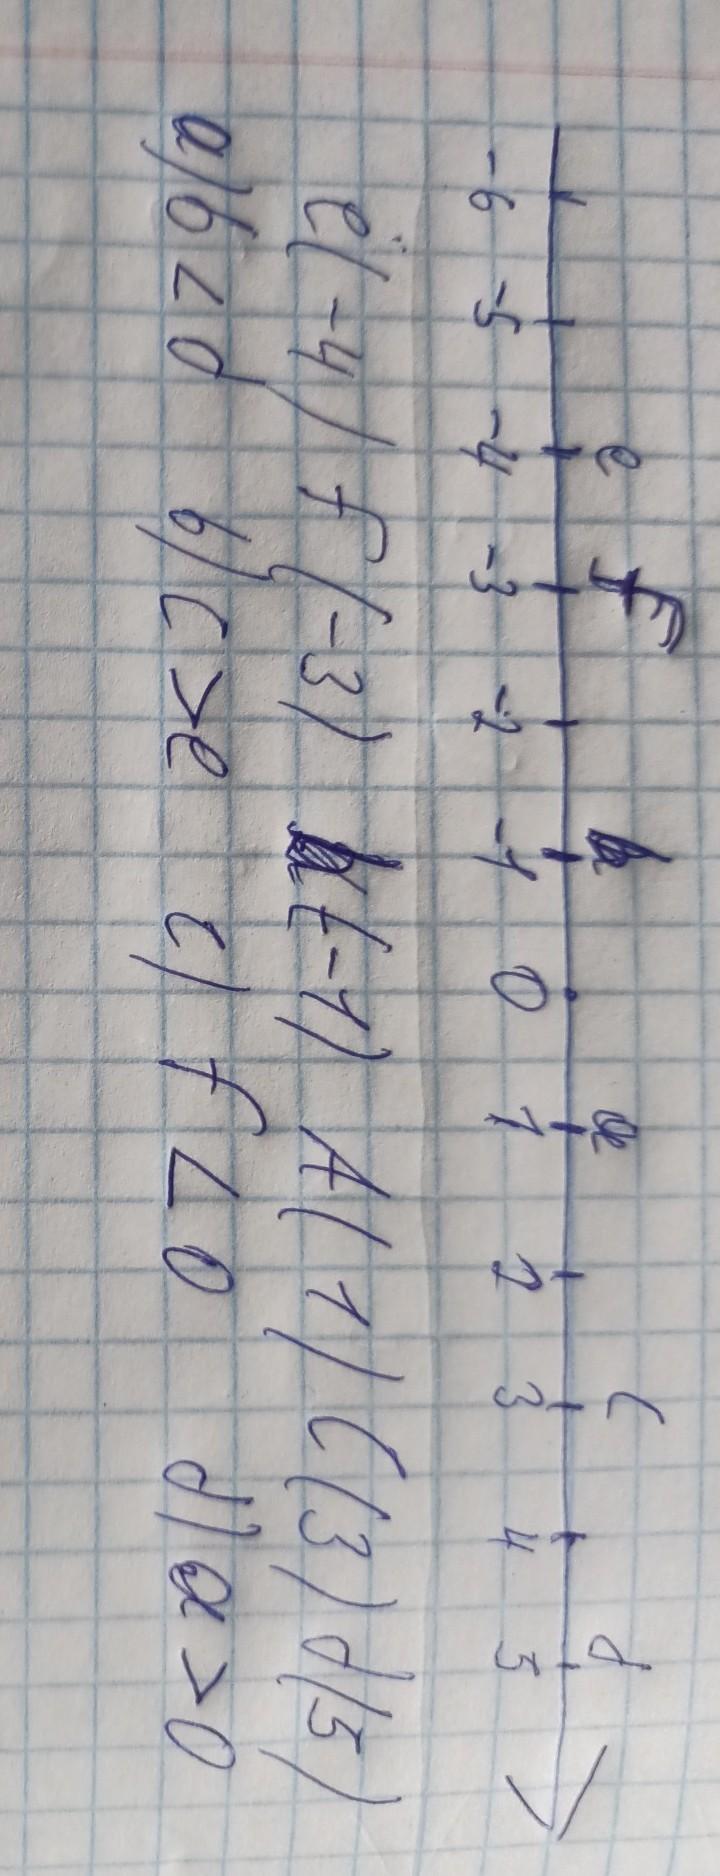 e f b a c d
-6 -5 -4 -3 -2 -1 0 1 2 3 4 5
e(-4) f(-3) b(-1) A(1) C(3) d(5)
a) b < d b) c > e c) f < 0 d) a > 0